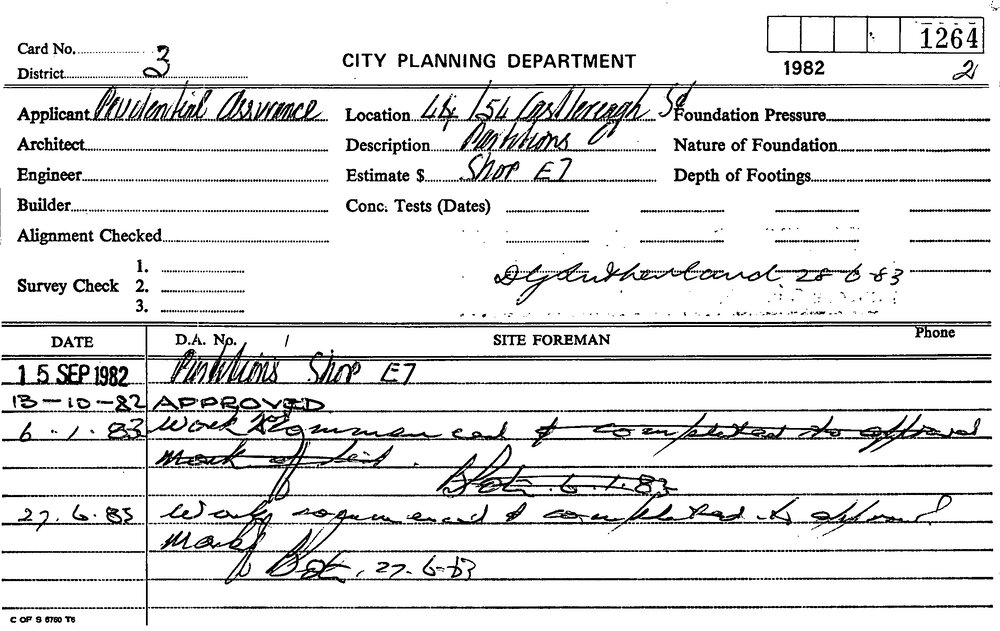 1264
Card No. 3
CITY PLANNING DEPARTMENT
1982 2
District
Applicant Prudential Assurance Location 44/54 Castlereagh St Foundation Pressure
Architect Description Partitions Nature of Foundation
Engineer Estimate $ Shop E7 Depth of Footings
Builder Conc. Tests (Dates)
Alignment Checked
1.
Survey Check 2. 28-6-83
3.
DATE D.A. No. / SITE FOREMAN Phone
15 SEP 1982 Partitions Shop E7
13-10-82 APPROVED
6.1.83 Work commenced & completed to approval
6.1.83
27.6.83 Work commenced & completed to approval
27-6-83
C OF S 6760 T6